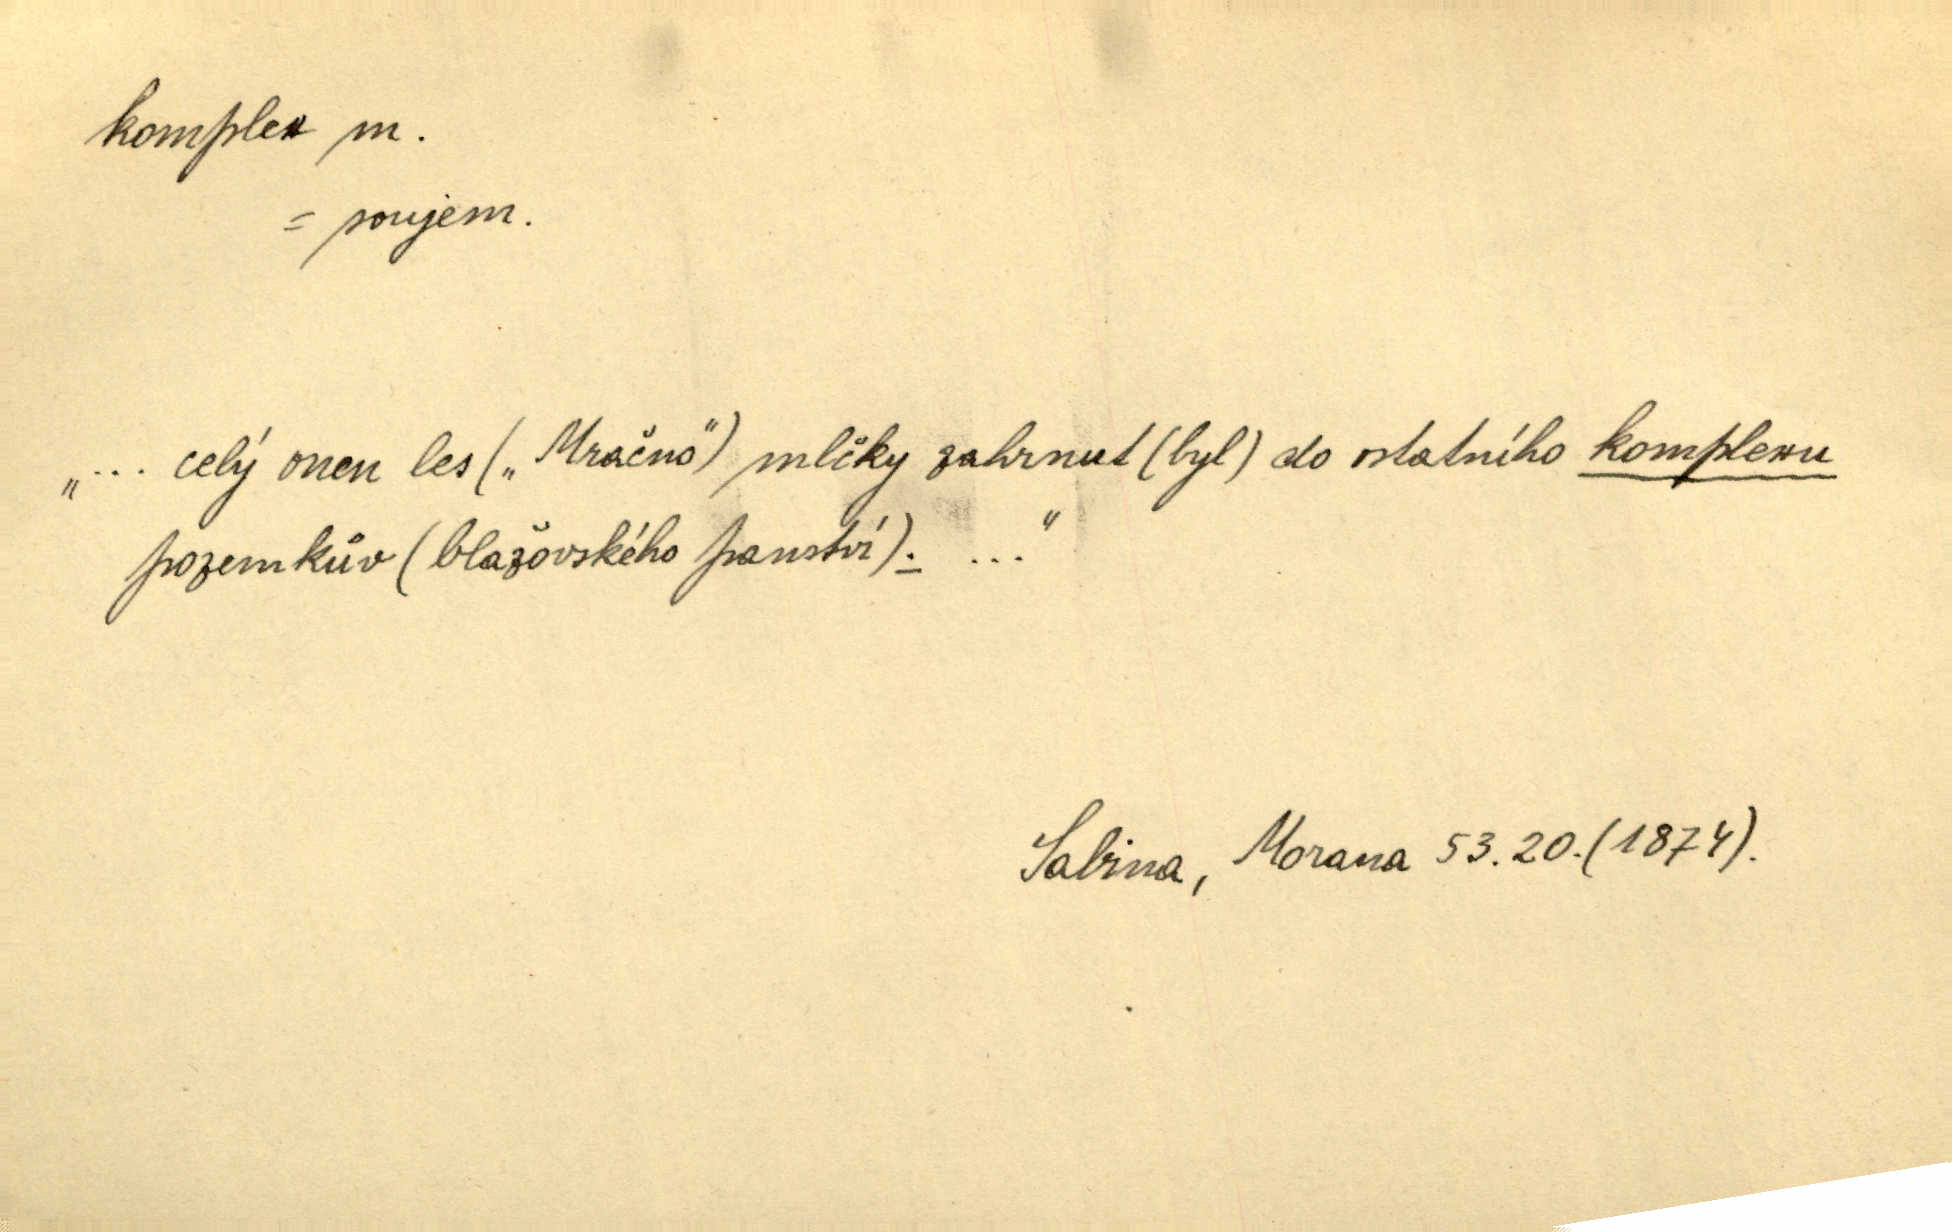 komplex m.
= soujem.
„... celý onen les („Mračno“) mlčky zahrnut (byl) do ostatního komplexu
pozemkův (blažovského panství). ...“
Sabina, Morana 53.20. (1874).